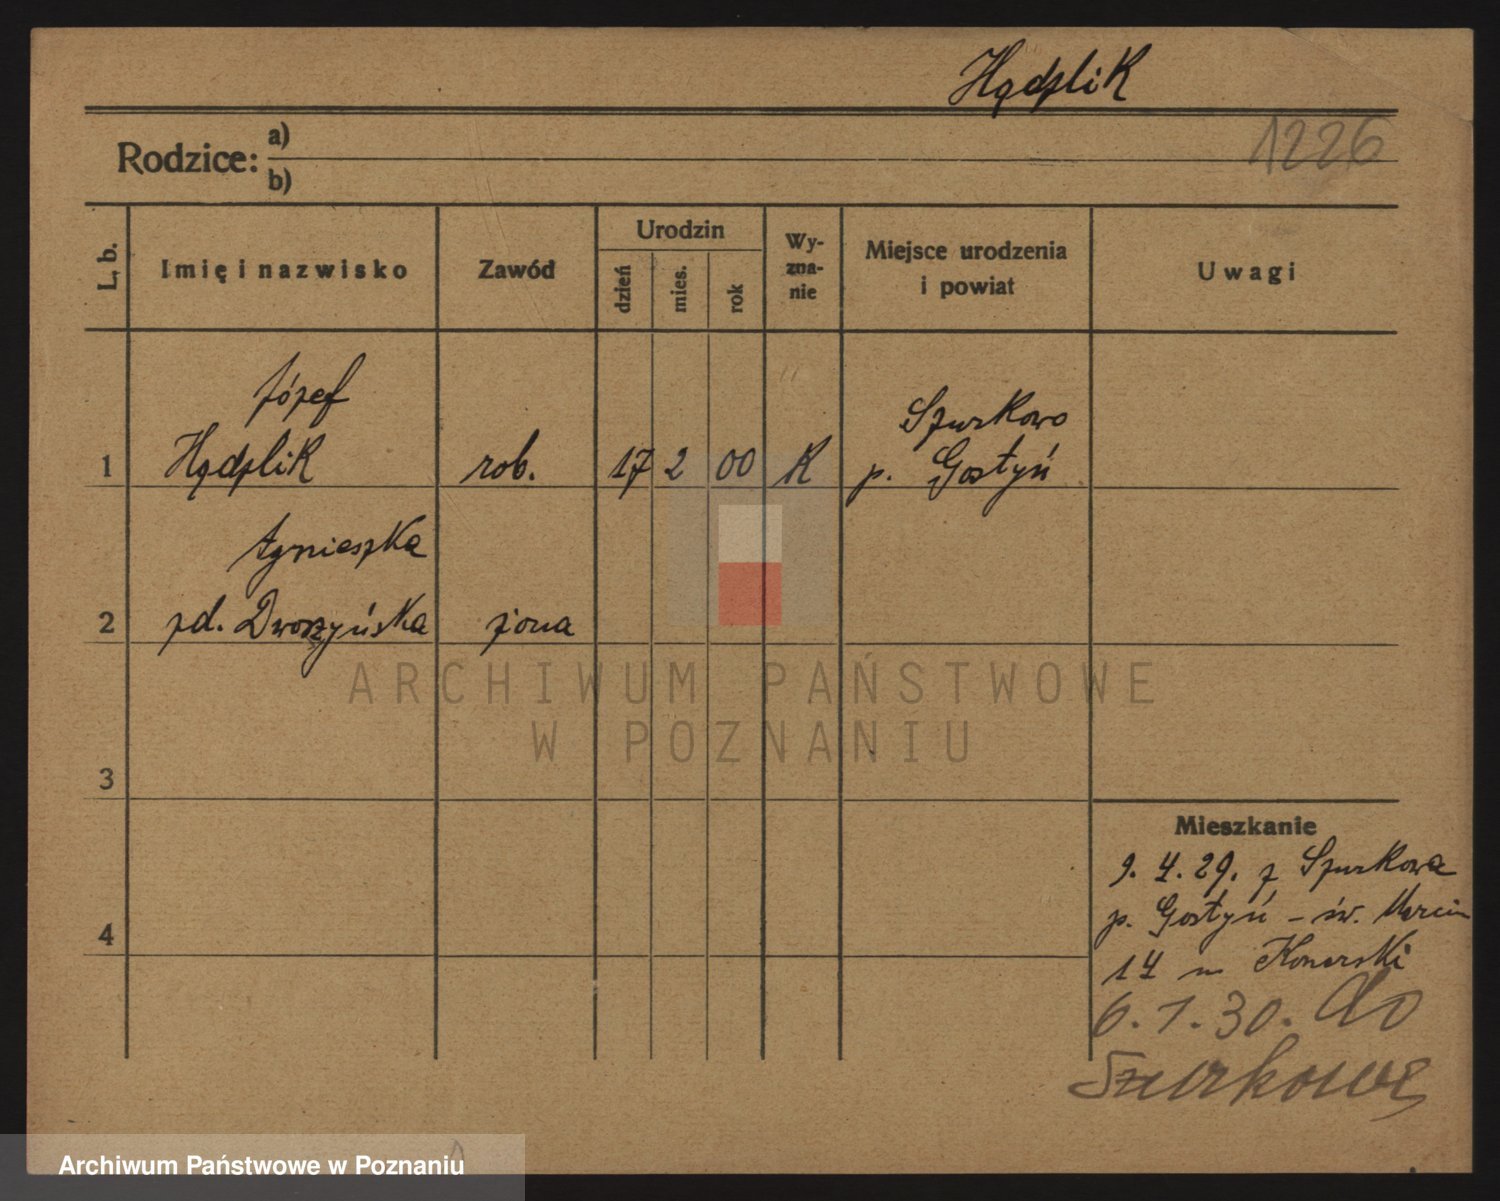 Hądzlik
1226
Rodzice: a)
b)
L. b.
Imię i nazwisko
Zawód
Urodzin
dzień
mies.
rok
Wy-
zna-
nie
Miejsce urodzenia
i powiat
Uwagi
Józef
1 Hądzlik rob. 17 2 00 K
Szurkowo
p. Gostyń
Agnieszka
2 zd. Dworzyńska żona
ARCHIWUM PAŃSTWOWE
W POZNANIU
3
4
Mieszkanie
9. 4. 29. z Szurkowa
p. Gostyń – św. Marcin
14 u Konerski
6. 1. 30. do
Szurkowa
Archiwum Państwowe w Poznaniu